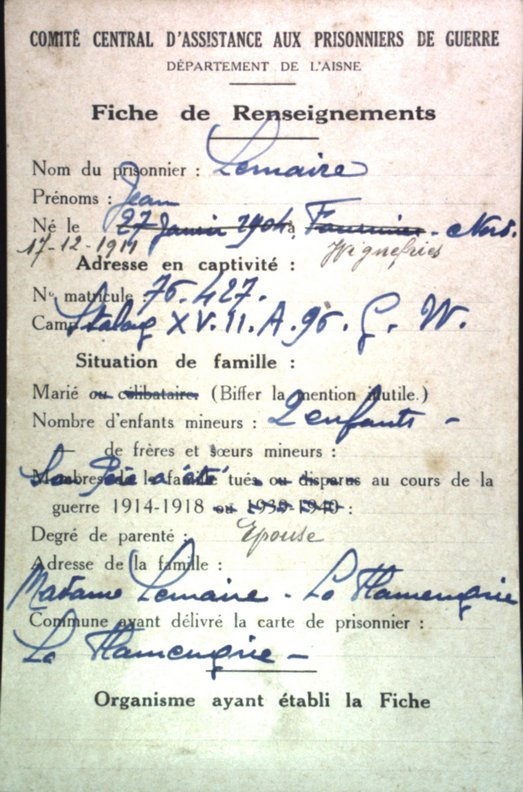 COMITÉ CENTRAL D'ASSISTANCE AUX PRISONNIERS DE GUERRE
DÉPARTEMENT DE L'AISNE
Fiche de Renseignements
Nom du prisonnier : Lemaire
Prénoms : Jean
Né le 27 Janvier 1904 à Fourmies - Nord.
17-12-1911 Wignehies
Adresse en captivité :
N° matricule 76.427.
Camp Stalag XV. II. A. 96. G. W.
Situation de famille :
Marié ou célibataire. (Biffer la mention inutile.)
Nombre d'enfants mineurs : 2 enfants -
— de frères et sœurs mineurs :
Son Père a été
Membres de la famille tués ou disparus au cours de la
guerre 1914-1918 ou 1939-1940 :
Degré de parenté : Epouse
Adresse de la famille :
Madame Lemaire - La Flamengrie
Commune ayant délivré la carte de prisonnier :
La Flamengrie -
Organisme ayant établi la Fiche